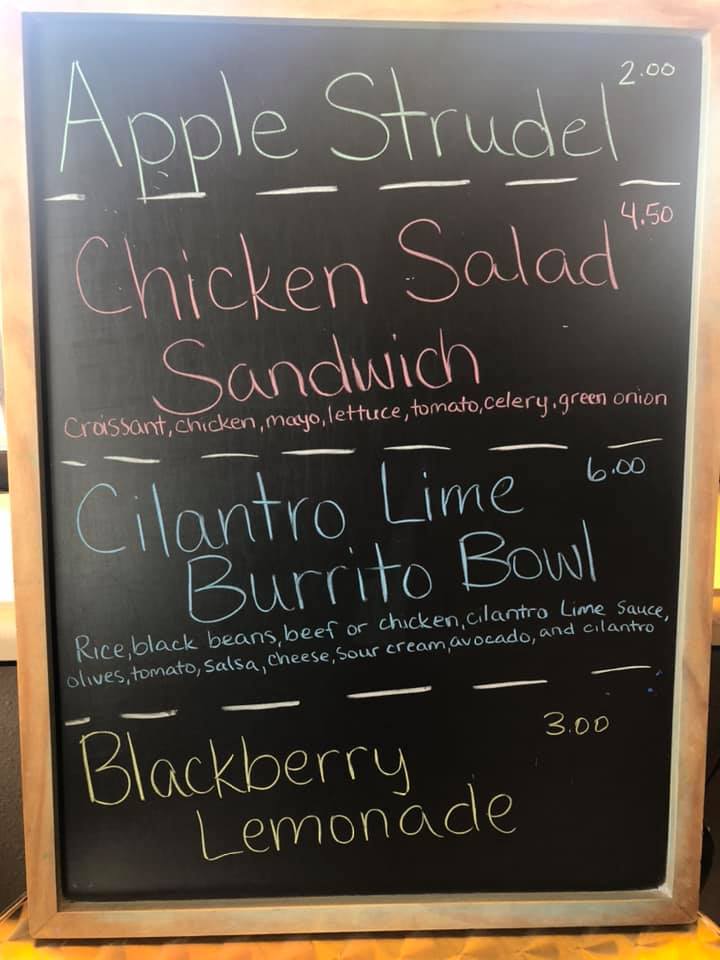 Apple Strudel 2.00
Chicken Salad 4.50
Sandwich
Croissant, chicken, mayo, lettuce, tomato, celery, green onion
Cilantro Lime 6.00
Burrito Bowl
Rice, black beans, beef or chicken, cilantro Lime sauce,
olives, tomato, salsa, cheese, sour cream, avocado, and cilantro
Blackberry 3.00
Lemonade